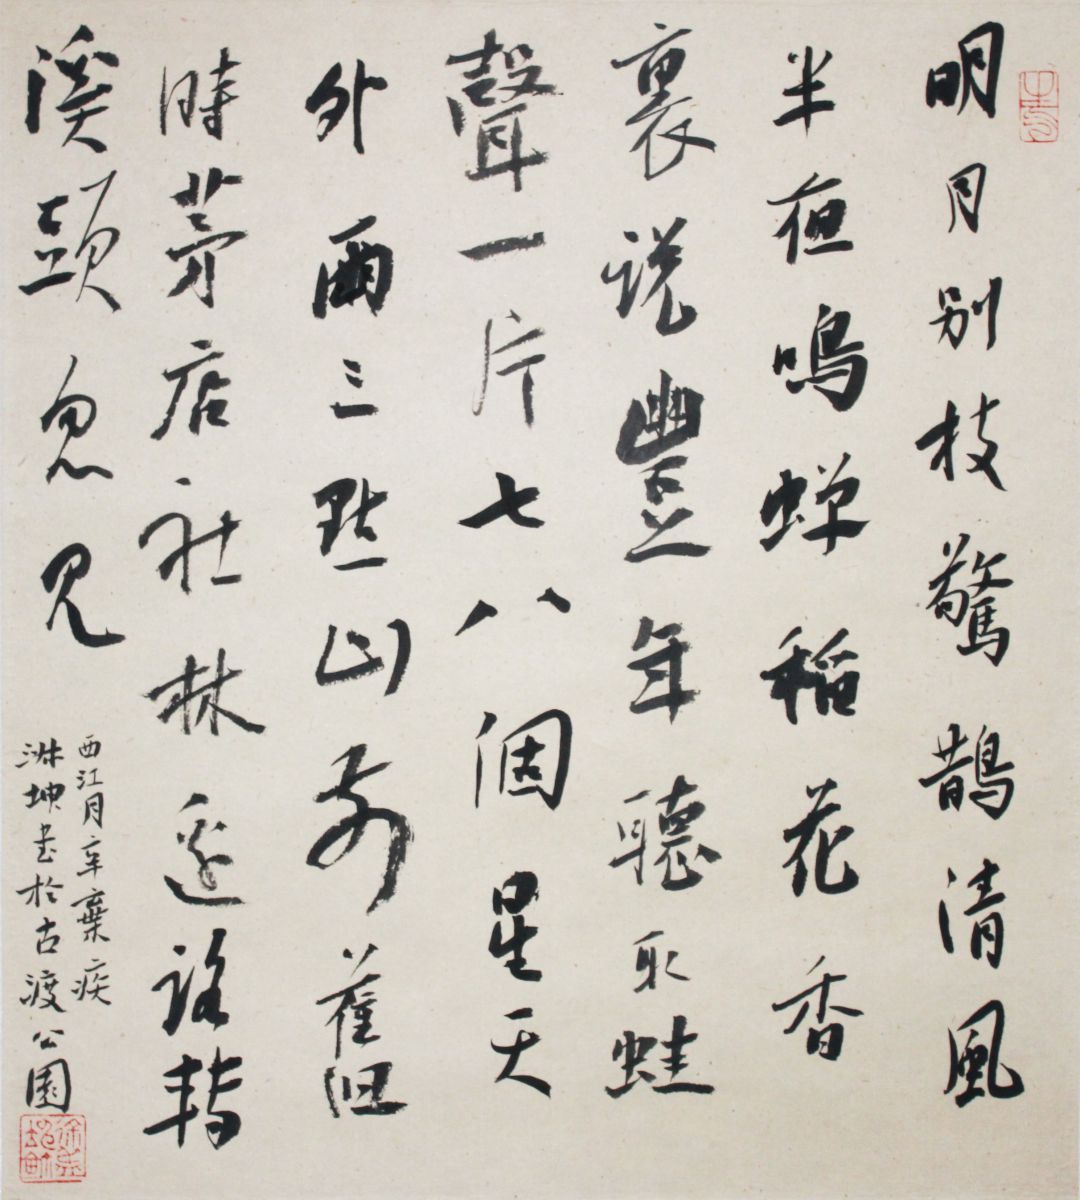 明月别枝驚鵲清風
半夜鳴蝉稻花香
裏说豐年聽取蛙
聲一片七八個星天
外兩三點山前舊
時茅店社林邊路轉
溪頭忽見
西江月辛棄疾
淋坤书於古渡公園